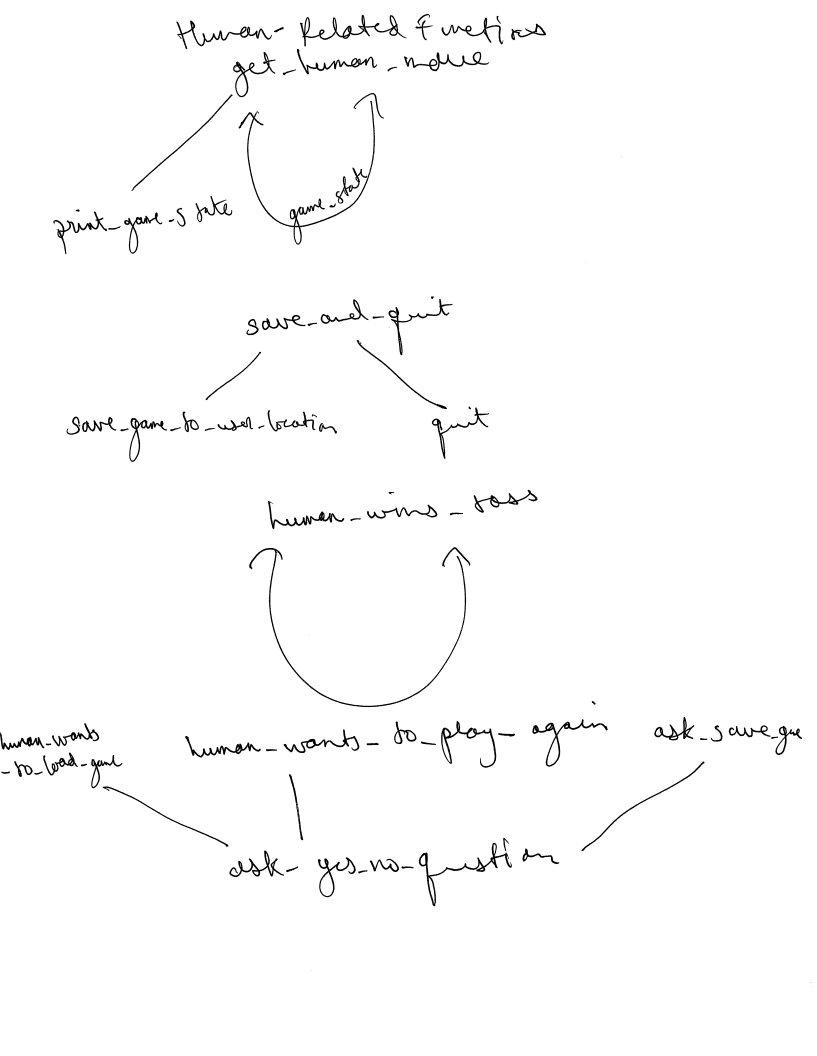 Human-Related Functions
get_human_move
game_state
print_game_state
save_and_quit
save_game_to_user_location
quit
human_wins_toss
human_wants
_to_load_game
human_wants_to_play_again
ask_save_game
ask_yes_no_question